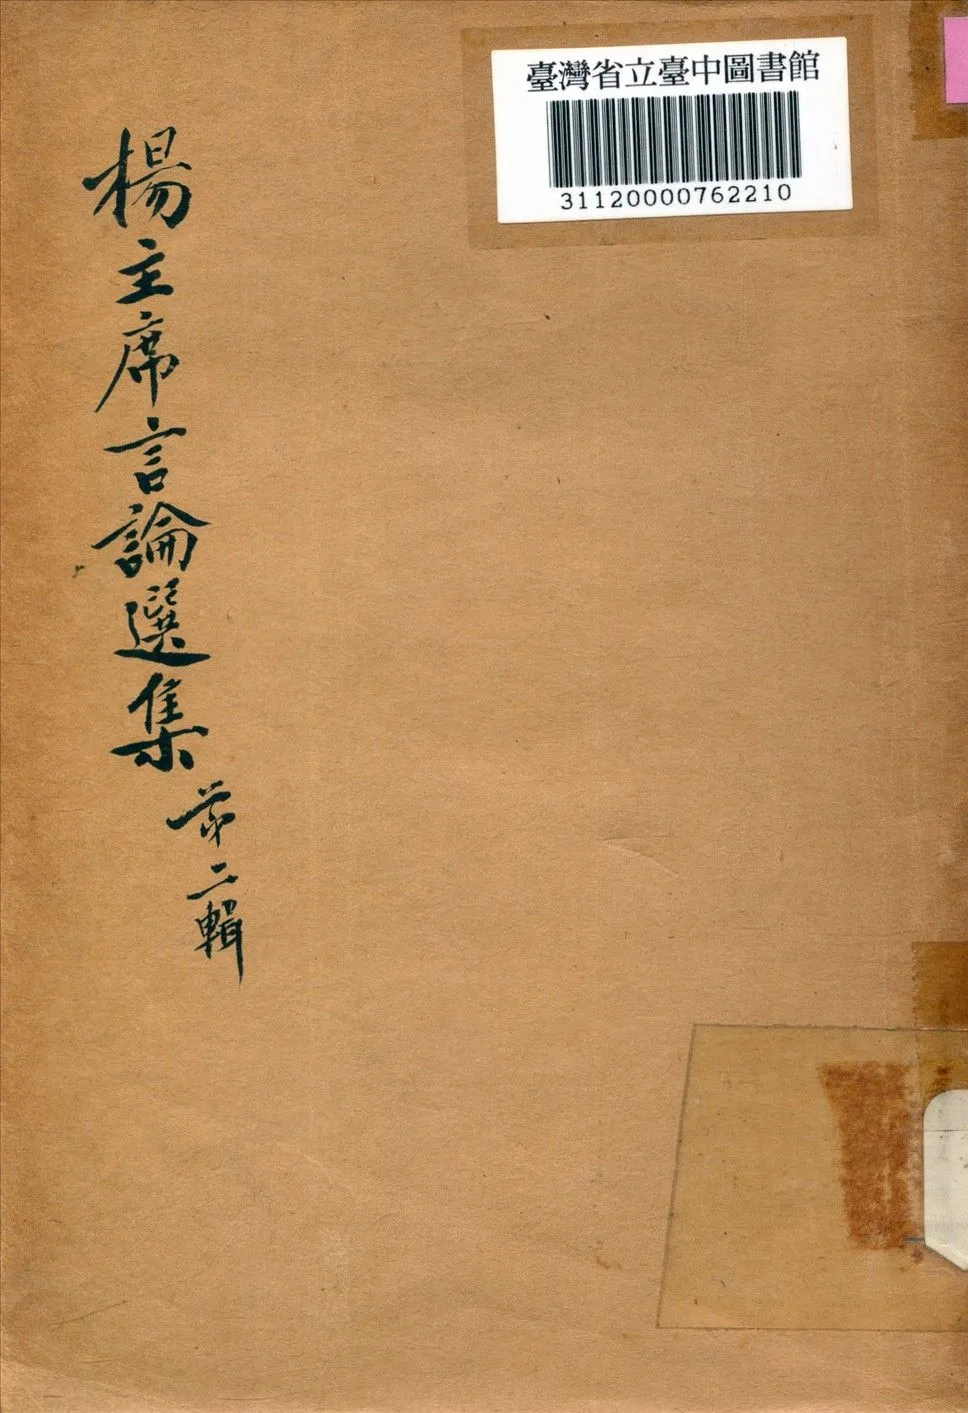 臺灣省立臺中圖書館
31120000762210
楊主席言論選集
第二輯